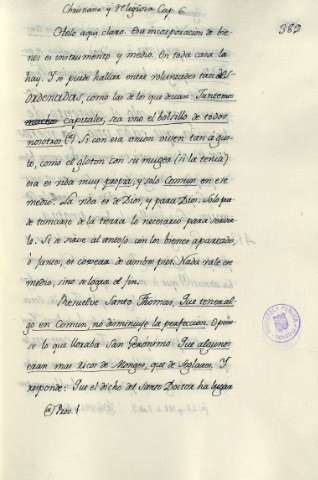 Christiana y Religiosa Cap. 6.
389
Hela aqui claro. Esa incorporacion de bie-
nes es instrumento y medio. En toda casa la
hay. Y si pudo hallar entre voluntades tan des-
ordenadas, como las de los que decian: Juntemos
capitales, sea uno el bolsillo de todos
nosotros (*) Si con esa union viven tan a gus-
to, como el gloton con su muger (si la tenia)
esa es vida muy propia, y solo comun en ese
medio. La vida es de Dios, y para Dios. Solo pu-
de tomarse de la tierra lo necesario para
lo. Si se sirve al antojo con los bienes apartados,
ò juntos, es cogera de ambos pies. Nada vale ese
medio, sino se logra el fin.
Resuelve Santo Thomas, Que tener al-
go en comun, no disminuye la perfeccion. Opone-
se lo que lloraba San Geronimo: Que algunos
eran mas ricos de Monges, que de Seglares. Y
responde: Que el dicho del Santo Doctor ha lugar
(*) Prov. 1